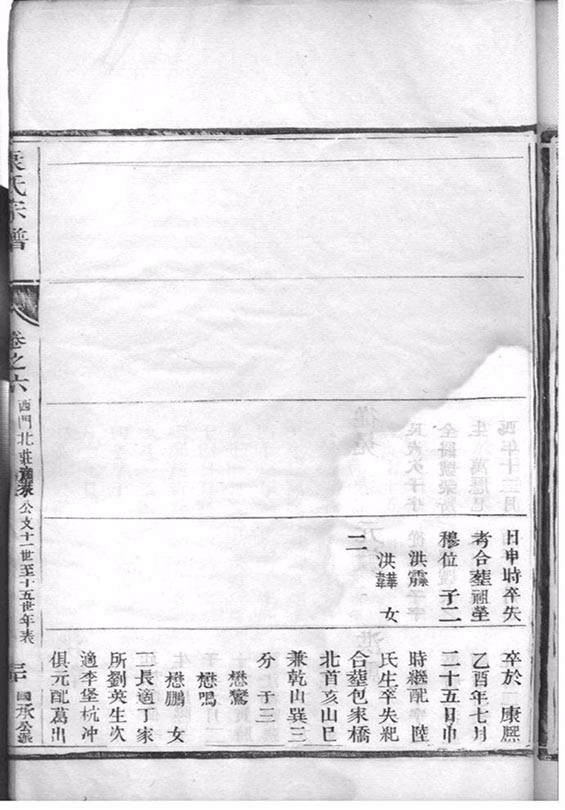 日申時卒失
考合塟祖塋
穆位 子二
洪霖
洪韡 女
二
卒於 康熈
乙酉年七月
二十五日申
時繼配 陸
氏生卒失紀
合塟包家橋
北首亥山巳
兼乾山巽三
分 子三
懋鸞
懋鳴
懋鵬 女
二長適丁家
所劉英生次
適李堡杭冲
俱元配葛出
氏宗譜
卷之六
西門北莊
公支十一世至十五世年表